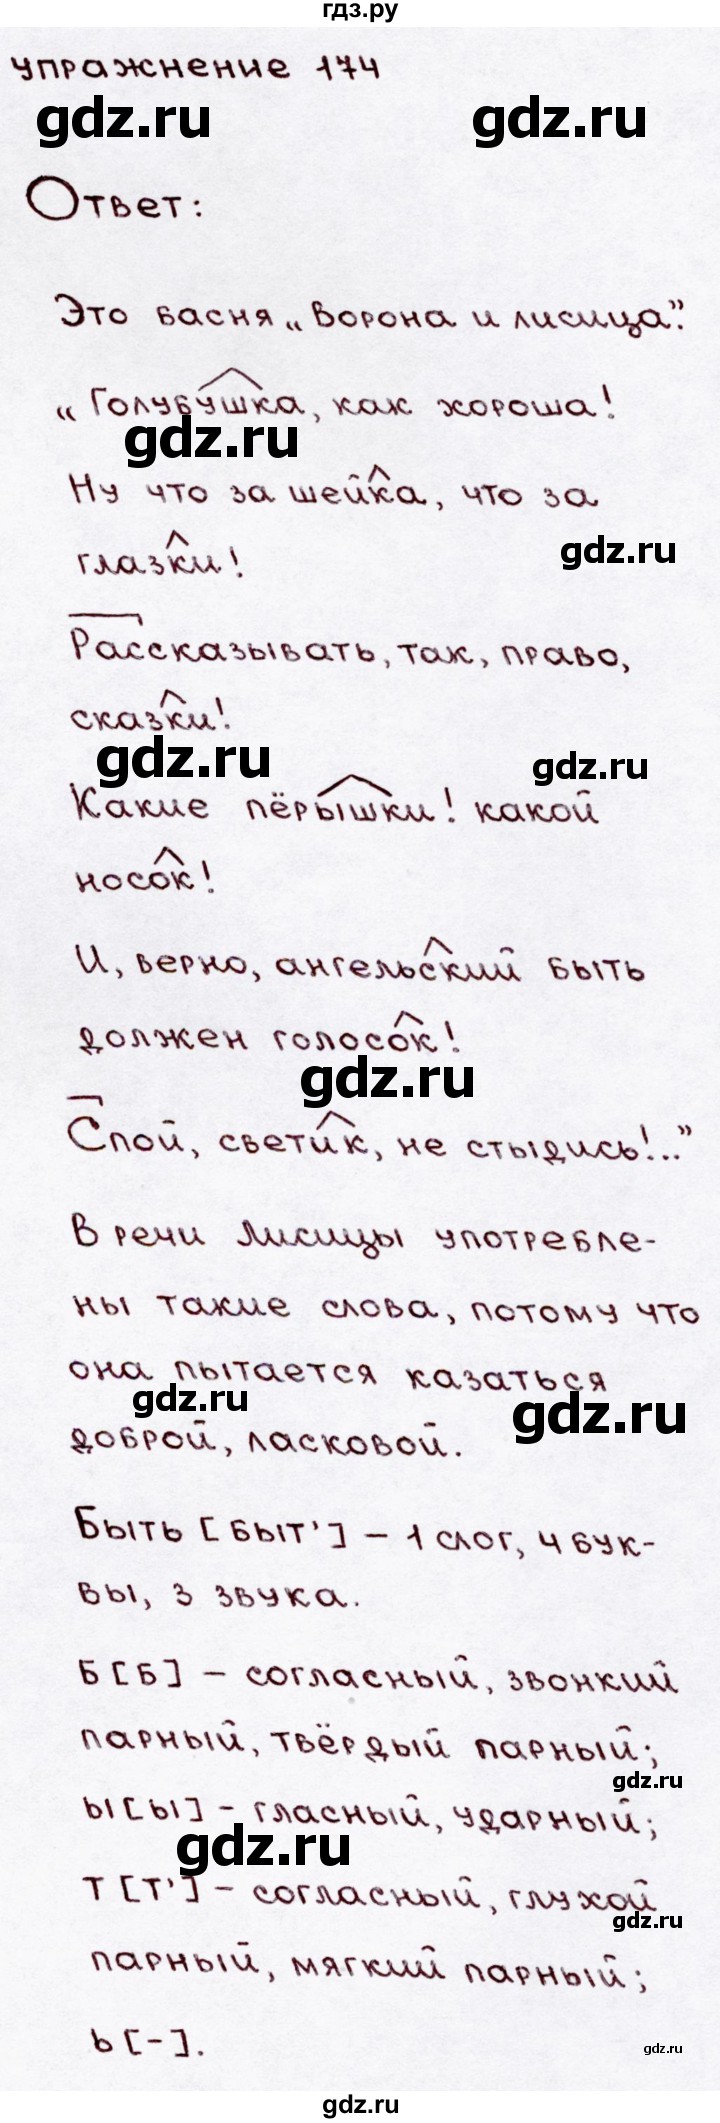 гдз.ру
упражнение 174
gdz.ru gdz.ru
Ответ:
Это басня „Ворона и лисица”.
„Голубушка, как хороша!
gdz.ru
Ну что за шейка, что за
gdz.ru
глазки!
Рассказывать, так, право,
сказки!
gdz.ru gdz.ru
Какие пёрышки! какой
носок!
И, верно, ангельский быть
должен голосок!
gdz.ru
Спой, светик, не стыдись!..”
В речи Лисицы употребле-
ны такие слова, потому что
она пытается казаться
gdz.ru gdz.ru
доброй, ласковой.
Быть [быт'] – 1 слог, 4 бук-
вы, 3 звука.
Б [б] – согласный, звонкий
парный, твёрдый парный;
gdz.ru
ы [ы] – гласный, ударный;
gdz.ru
Т [т'] – согласный, глухой
gdz.ru
парный, мягкий парный;
ь [-].
gdz.ru
gdz.ru